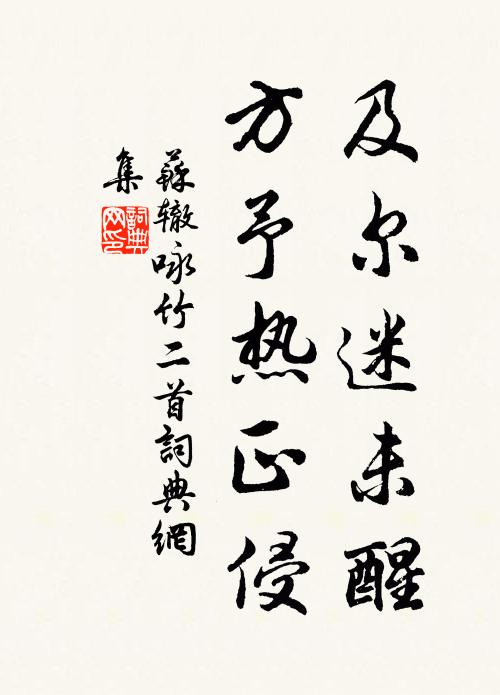 及尔迷未醒
方予热正侵
蘇辙咏竹二首詞典網
集
詞典
网印